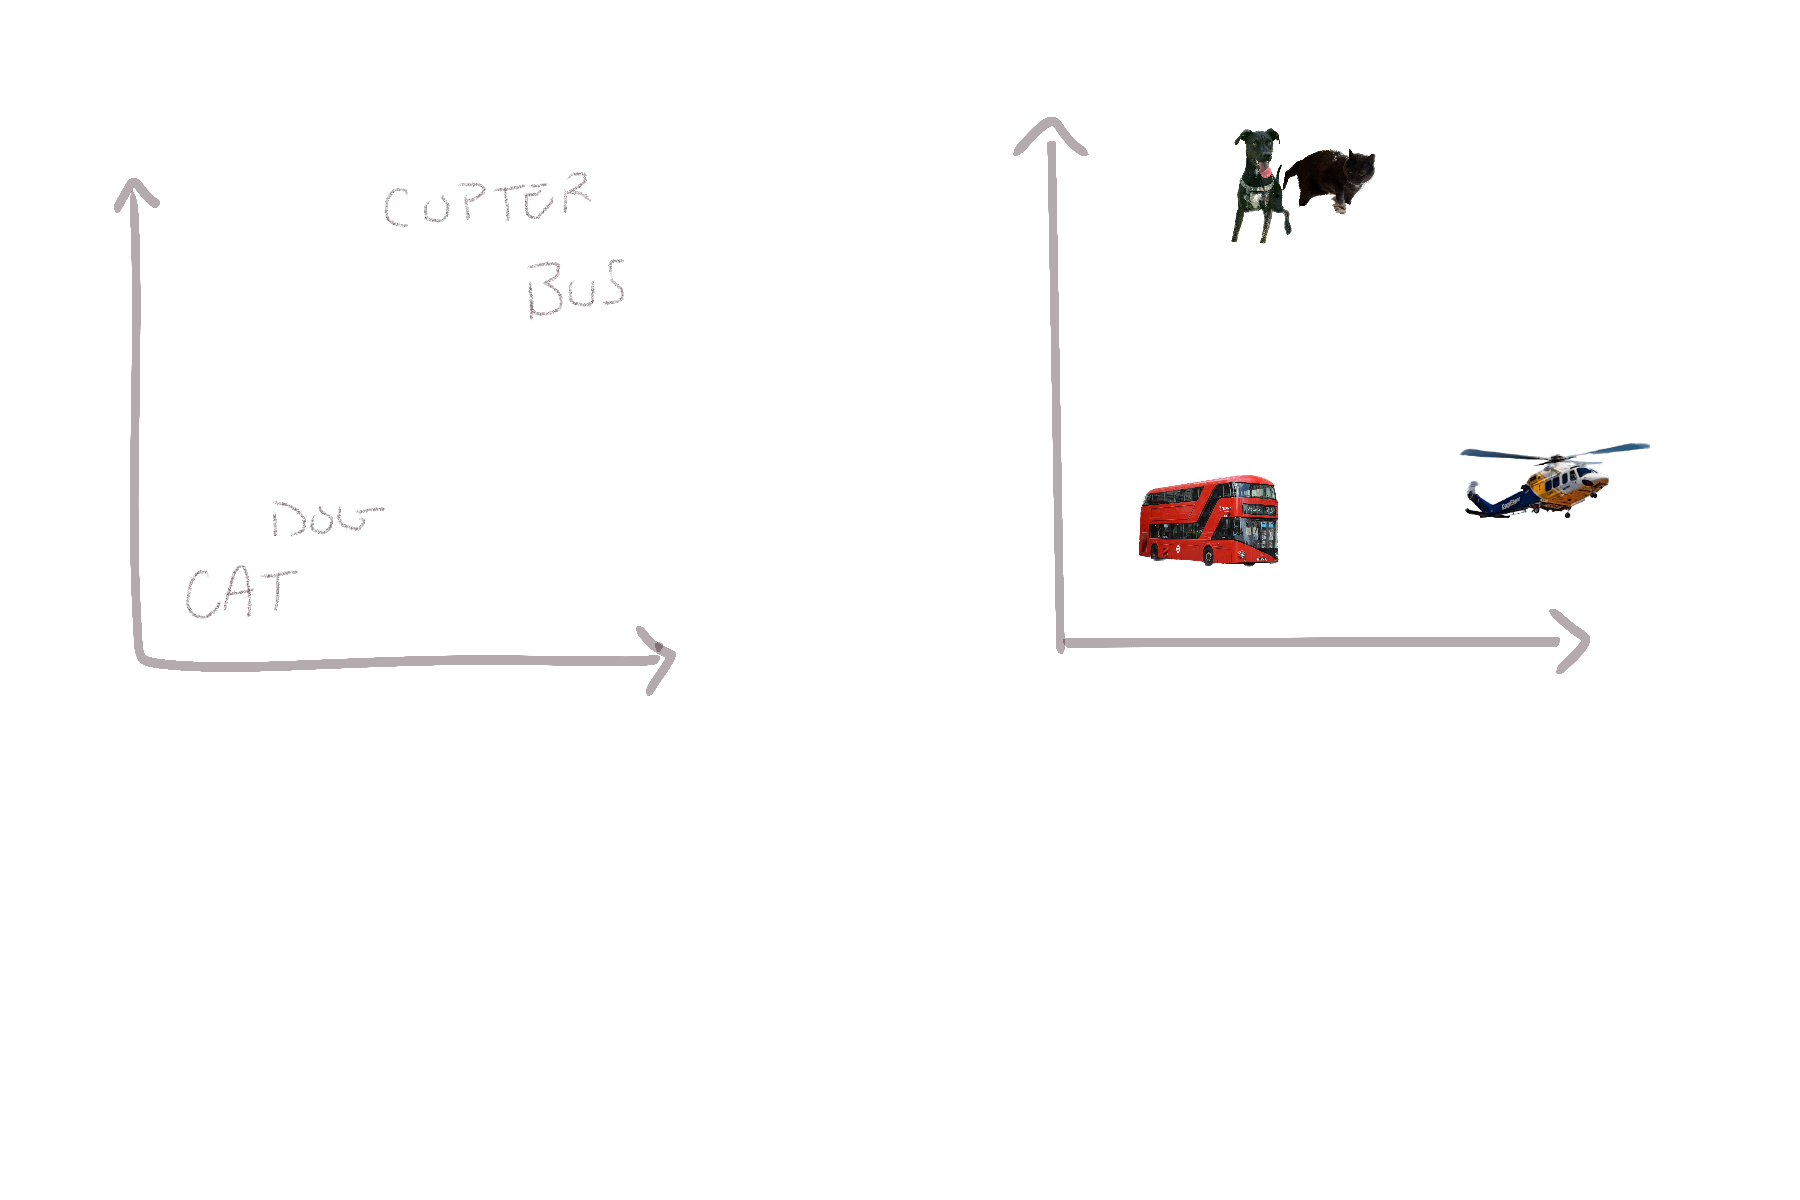 COPTER
BUS
DOG
CAT